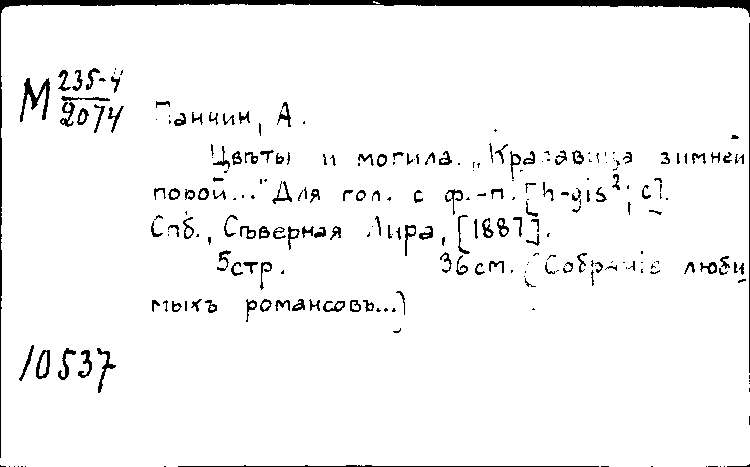 М 235-4
2074
Панчин, А.
Цвѣты и могила. „Красавица зимней
порой..." Для гол. с ф.-п. [h-gis²; c].
Спб., Сѣверная Лира, [1887].
5стр. 36см. (Собранiе люби
мыхъ романсовъ...)
10537